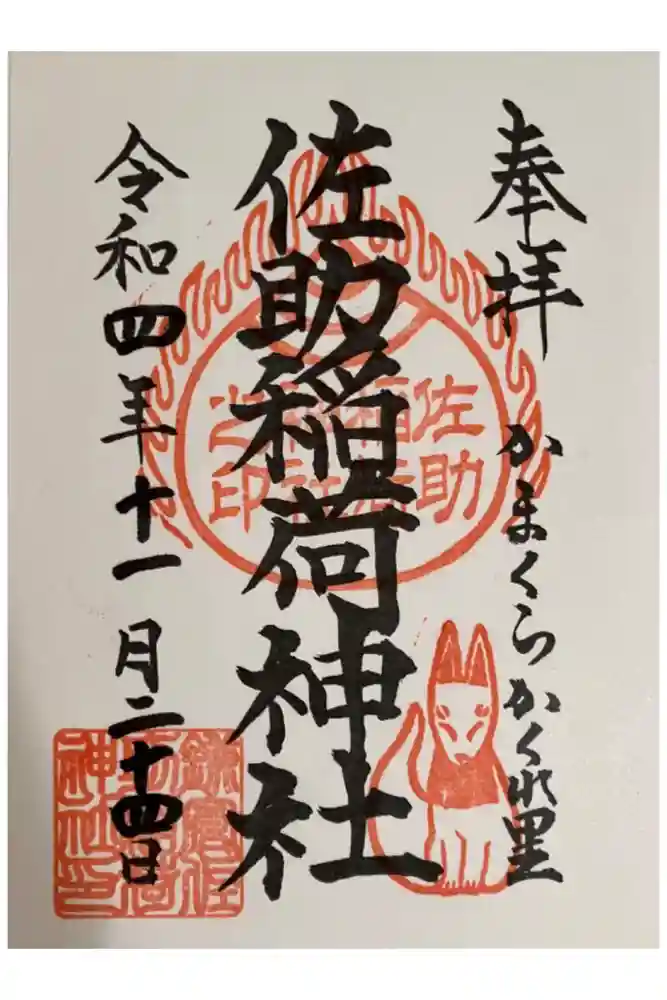 奉拝
かまくらかくれ里
佐助稲荷神社
佐助
稲荷
神社
之印
令和四年十一月二十四日